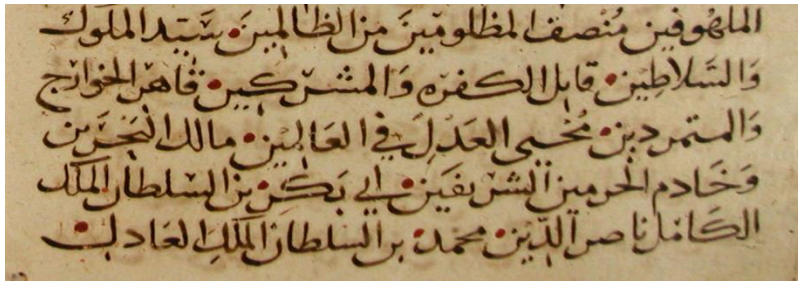 الملهوفين مُنْصف المظلومين مِنَ الظالمينَ سَيّد الملوك
وَالسَّلاطِين قاتل الكفره وَالمشركين قَاهر الخوارج
وَالمتمردين مُحْيي العَدْلِ في العَالمِين مالك البَحْرَين
وَخَادم الحرمين الشريفَين ابي بَكر بن السلطان الملك
الكَامل ناصر الدّين محمد بن السلطان الملك العادل